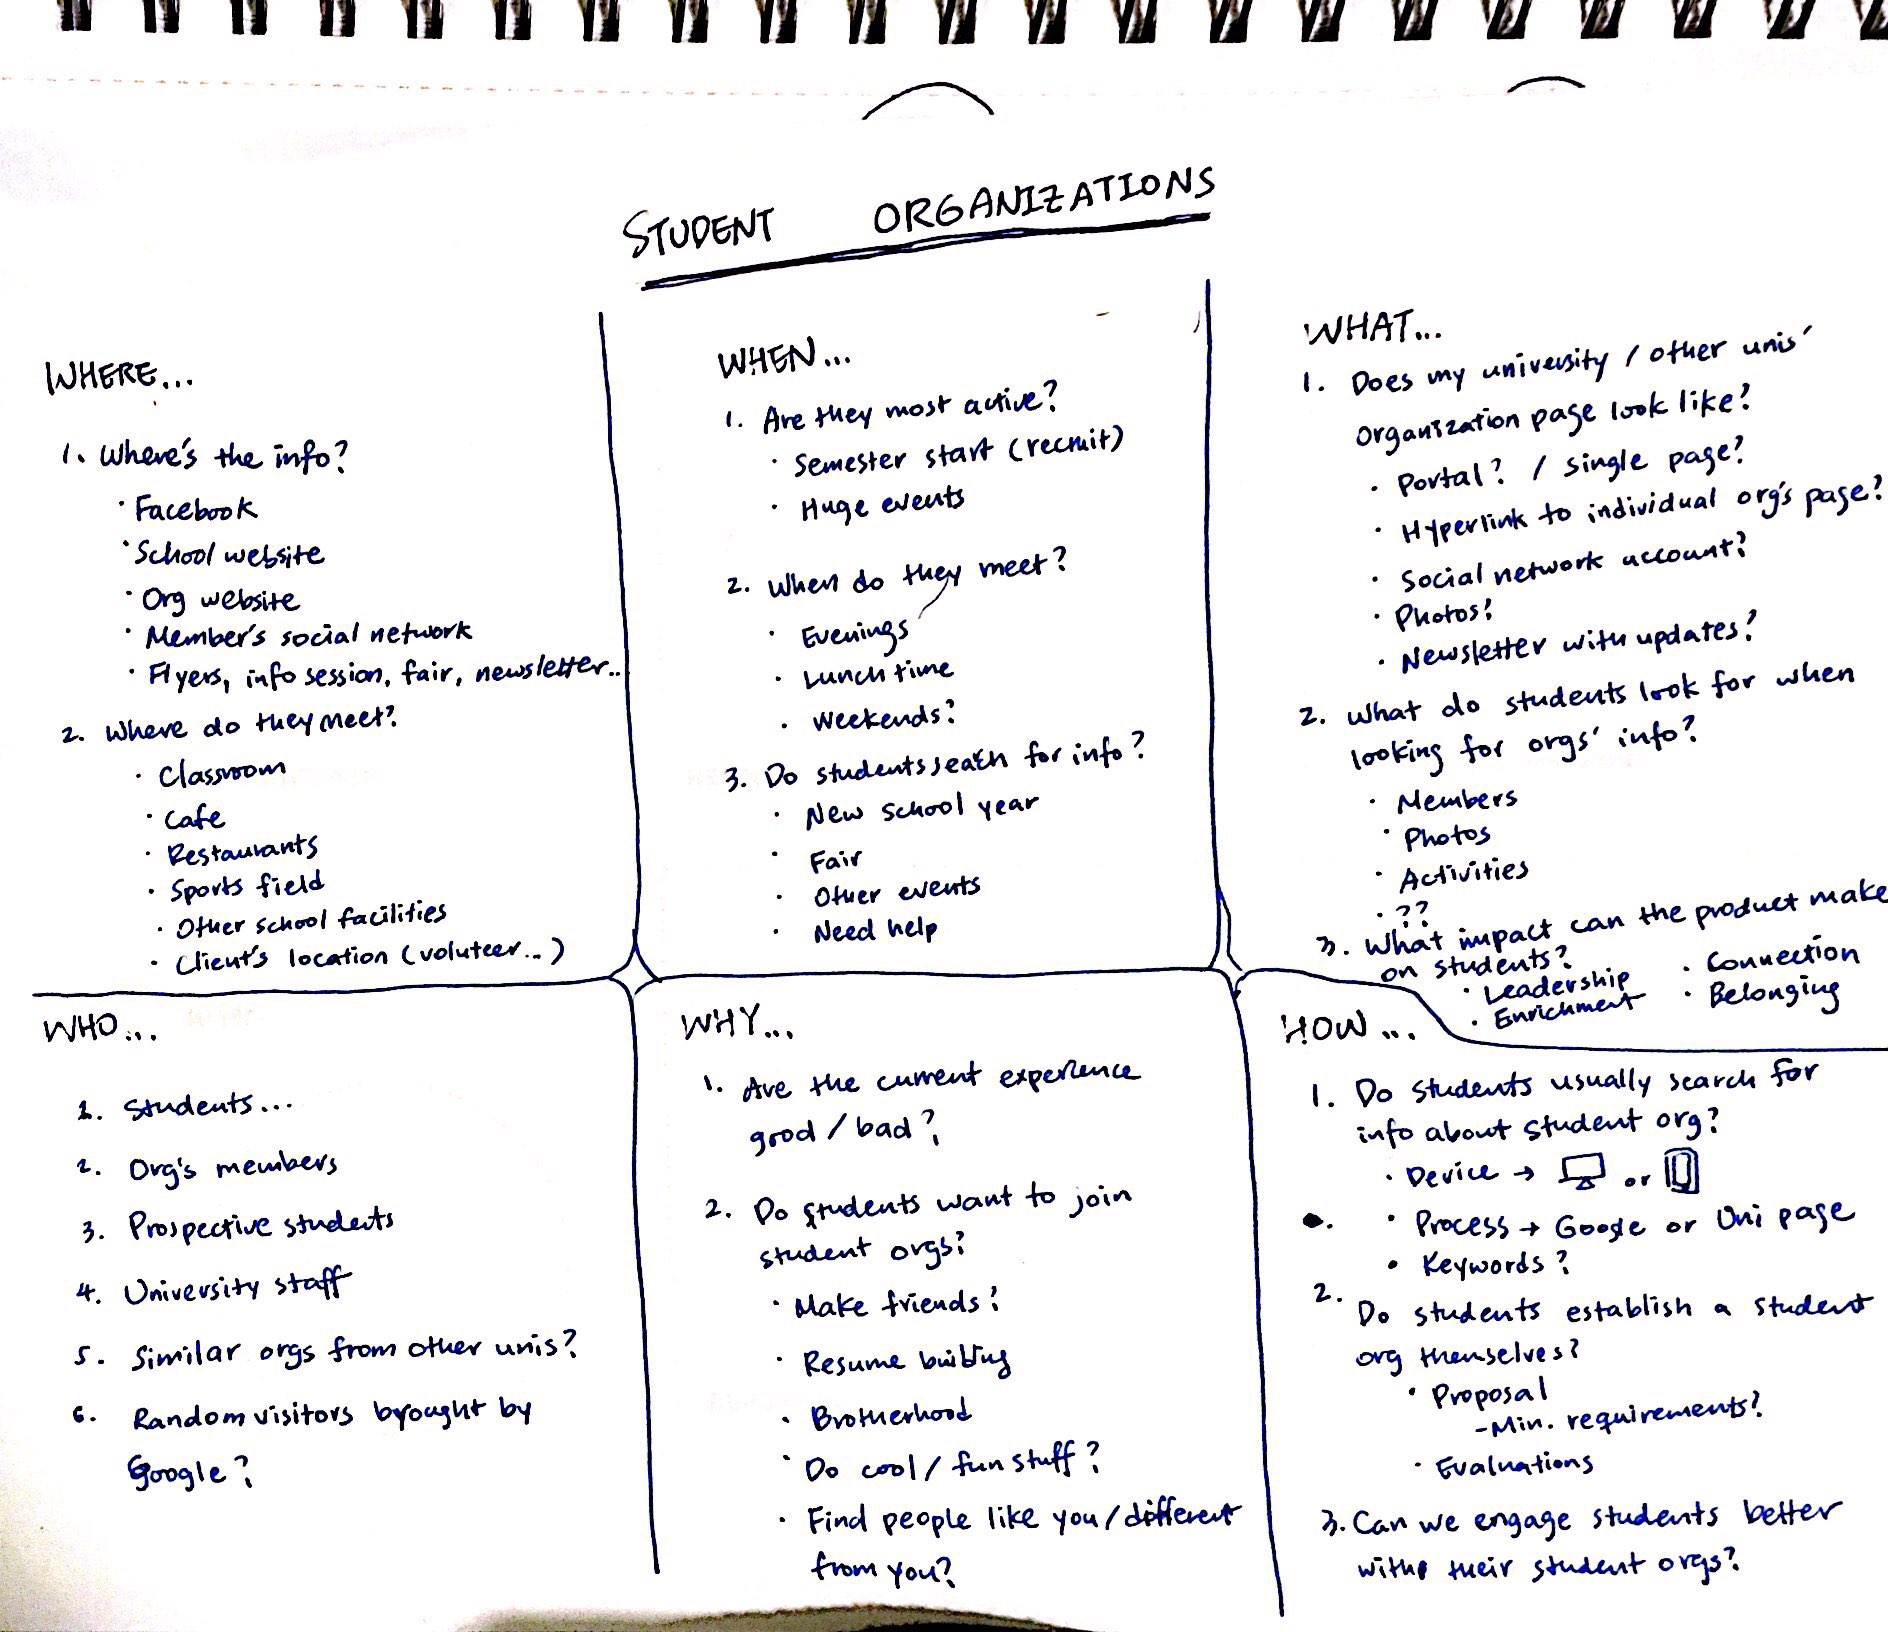 STUDENT ORGANIZATIONS
WHERE...
1. Where's the info?
· Facebook
· School website
· Org website
· Member's social network
· Flyers, info session, fair, newsletter..
2. Where do they meet?
· Classroom
· Cafe
· Restaurants
· Sports field
· Other school facilities
· Client's location (voluteer...)
WHEN...
1. Are they most active?
· Semester start (recruit)
· Huge events
2. When do they meet?
· Evenings
· Lunch time
· Weekends?
3. Do students seach for info?
· New school year
· Fair
· Other events
· Need help
WHAT...
1. Does my university / other unis'
organization page look like?
· Portal? / single page?
· Hyperlink to individual org's page?
· Social network account?
· Photos?
· Newsletter with updates?
2. What do students look for when
looking for orgs' info?
· Members
· Photos
· Activities
· ??
3. What impact can the product make
on students?
· Leadership
· Enrichment
· Connection
· Belonging
WHO...
1. Students...
2. Org's members
3. Prospective students
4. University staff
5. Similar orgs from other unis?
6. Random visitors brought by
Google?
WHY...
1. Are the current experience
good / bad?
2. Do students want to join
student orgs?
· Make friends?
· Resume building
· Brotherhood
· Do cool / fun stuff?
· Find people like you / different
from you?
HOW...
1. Do students usually search for
info about student org?
· Device → or
· Process → Google or Uni page
· Keywords?
2. Do students establish a student
org themselves?
· Proposal
- Min. requirements?
· Evaluations
3. Can we engage students better
with their student orgs?